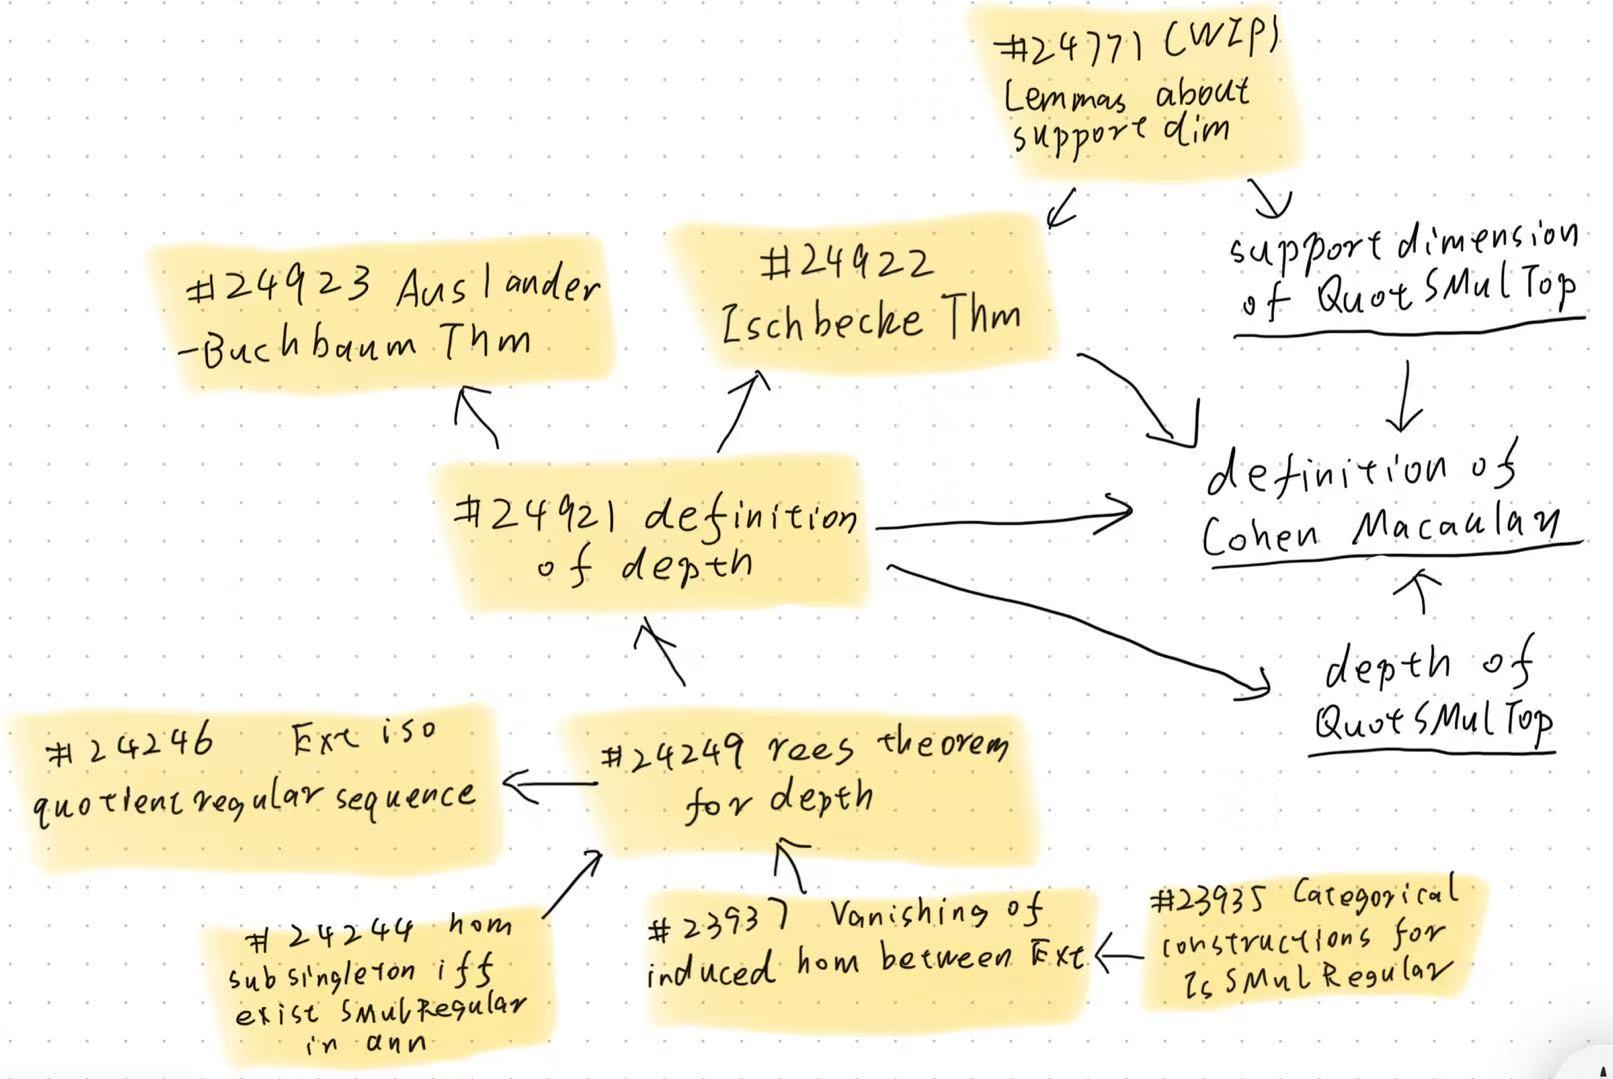 #24771 (WIP)
Lemmas about
support dim
#24923 Auslander
-Buchbaum Thm
#24922
Ischbecke Thm
support dimension
of QuotSMulTop
#24921 definition
of depth
definition of
Cohen Macaulay
depth of
QuotSMulTop
#24246 Ext iso
quotient regular sequence
#24249 rees theorem
for depth
#24244 hom
subsingleton iff
exist SMulRegular
in ann
#23937 Vanishing of
induced hom between Ext
#23935 Categorical
constructions for
IsSMulRegular